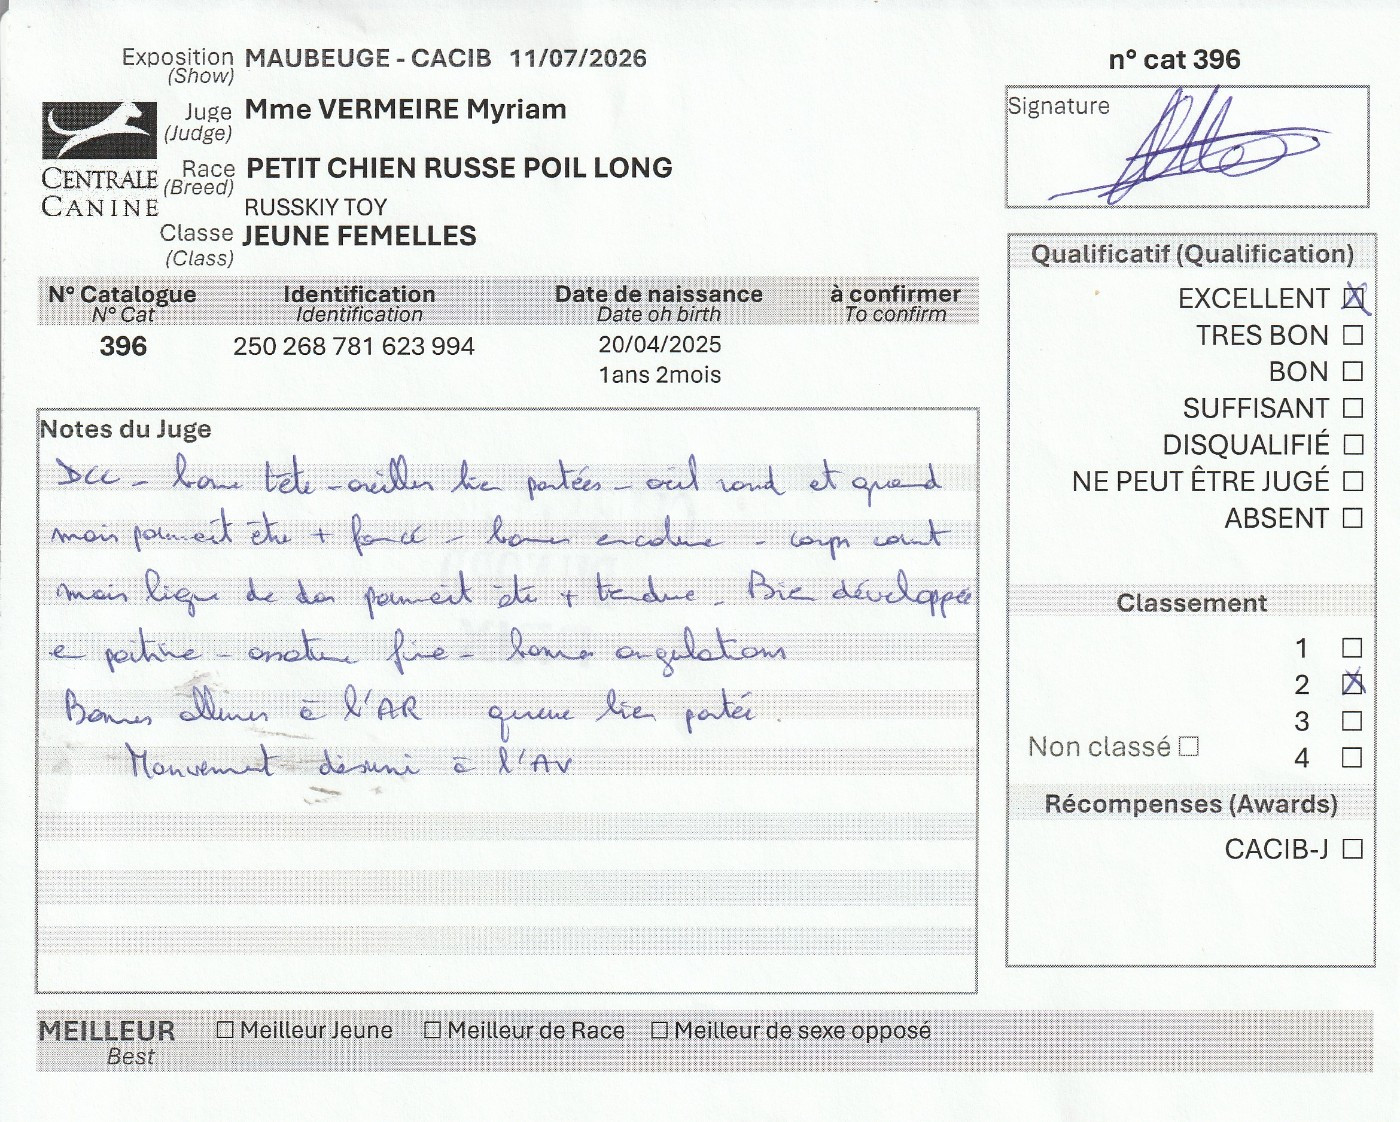 Exposition MAUBEUGE - CACIB 11/07/2026
(Show)
n° cat 396
Juge Mme VERMEIRE Myriam
(Judge)
Signature
CENTRALE
CANINE
Race PETIT CHIEN RUSSE POIL LONG
(Breed)
RUSSKIY TOY
Classe JEUNE FEMELLES
(Class)
N° Catalogue Identification Date de naissance à confirmer
N° Cat Identification Date oh birth To confirm
396 250 268 781 623 994 20/04/2025
1ans 2mois
Notes du Juge
DCC - bonne tête - oreilles bien portées - œil rond et grand
mais pourrait être + foncé - bonne encolure - corps court
mais ligne de dos pourrait être + tendue - Bien développée
en poitrine - ossature fine - bonnes angulations
Bonnes allures à l'AR queue bien portée
Mouvement désuni à l'AV
Qualificatif (Qualification)
EXCELLENT
TRES BON
BON
SUFFISANT
DISQUALIFIÉ
NE PEUT ÊTRE JUGÉ
ABSENT
Classement
1
2
3
Non classé
4
Récompenses (Awards)
CACIB-J
MEILLEUR Meilleur Jeune Meilleur de Race Meilleur de sexe opposé
Best